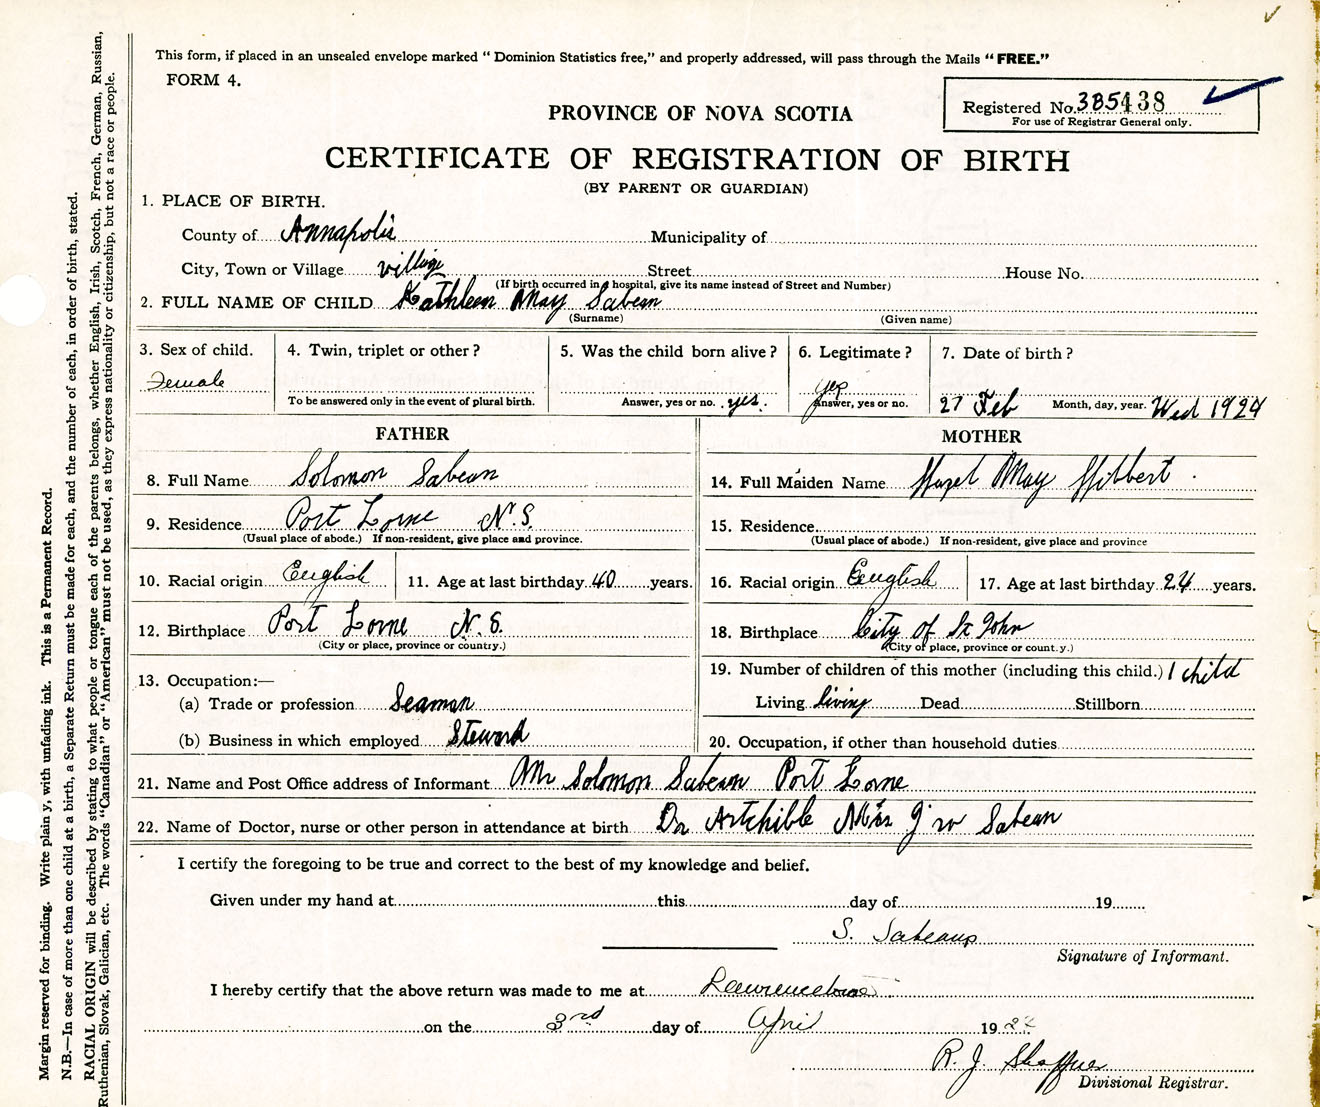 This form, if placed in an unsealed envelope marked “ Dominion Statistics free,” and properly addressed, will pass through the Mails “ FREE.”
FORM 4.
Registered No. 385438
For use of Registrar General only.
PROVINCE OF NOVA SCOTIA
CERTIFICATE OF REGISTRATION OF BIRTH
(BY PARENT OR GUARDIAN)
1. PLACE OF BIRTH.
County of Annapolis Municipality of
City, Town or Village village Street House No.
(If birth occurred in hospital, give its name instead of Street and Number)
2. FULL NAME OF CHILD Kathleen May Sabean
(Surname) (Given name)
3. Sex of child. 4. Twin, triplet or other? 5. Was the child born alive? 6. Legitimate? 7. Date of birth?
Female yes
To be answered only in the event of plural birth. Answer, yes or no. yes. Answer, yes or no. 27 Feb Month, day, year. Wed 1924
FATHER MOTHER
8. Full Name Solomon Sabean 14. Full Maiden Name Hazel May Hibbert
9. Residence Port Lorne N.S. 15. Residence.
(Usual place of abode.) If non-resident, give place and province. (Usual place of abode.) If non-resident, give place and province
10. Racial origin English 11. Age at last birthday. 40 years. 16. Racial origin English 17. Age at last birthday. 24 years.
12. Birthplace Port Lorne N.S. 18. Birthplace City of St John
(City or place, province or country.) (City or place, province or count.y.)
19. Number of children of this mother (including this child.) 1 child
13. Occupation:—
(a) Trade or profession Seaman Living living Dead Stillborn
(b) Business in which employed Steward 20. Occupation, if other than household duties
21. Name and Post Office address of Informant Mr Solomon Sabean Port Lorne
22. Name of Doctor, nurse or other person in attendance at birth Dr Artchible Mrs J w Sabean
I certify the foregoing to be true and correct to the best of my knowledge and belief.
Given under my hand at this day of 19
S. Sabeans
Signature of Informant.
I hereby certify that the above return was made to me at Lawrencetown
on the 3rd day of April 1924
R. J. Shaffner
Divisional Registrar.
Margin reserved for binding. Write plain y, with unfading ink. This is a Permanent Record.
N.B.—In case of more than one child at a birth, a Separate Return must be made for each, and the number of each, in order of birth, stated.
RACIAL ORIGIN will be described by stating to what people or tongue each of the parents belongs, whether English, Irish, Scotch, French, German, Russian,
Ruthenian, Slovak, Galician, etc. The words “Canadian” or “American” must not be used, as they express nationality or citizenship, but not a race or people.